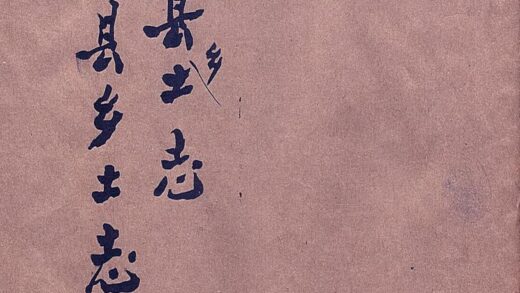 县乡土志
县乡土志